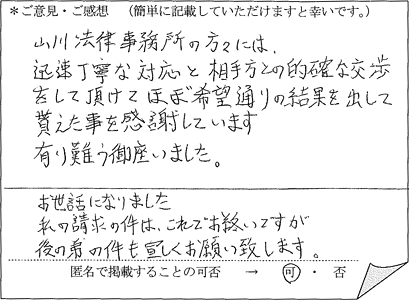 ＊ご意見・ご感想　（簡単に記載していただけますと幸いです。）
山川法律事務所の方々には、
迅速丁寧な対応と相手方との的確な交渉
をして頂けてほぼ希望通りの結果を出して
貰えた事を感謝しています
有り難う御座いました。
お世話になりました
私の請求の件は、これでお終いですが
後の弟の件も宜しくお願い致します。
匿名で掲載することの可否　→　可・否